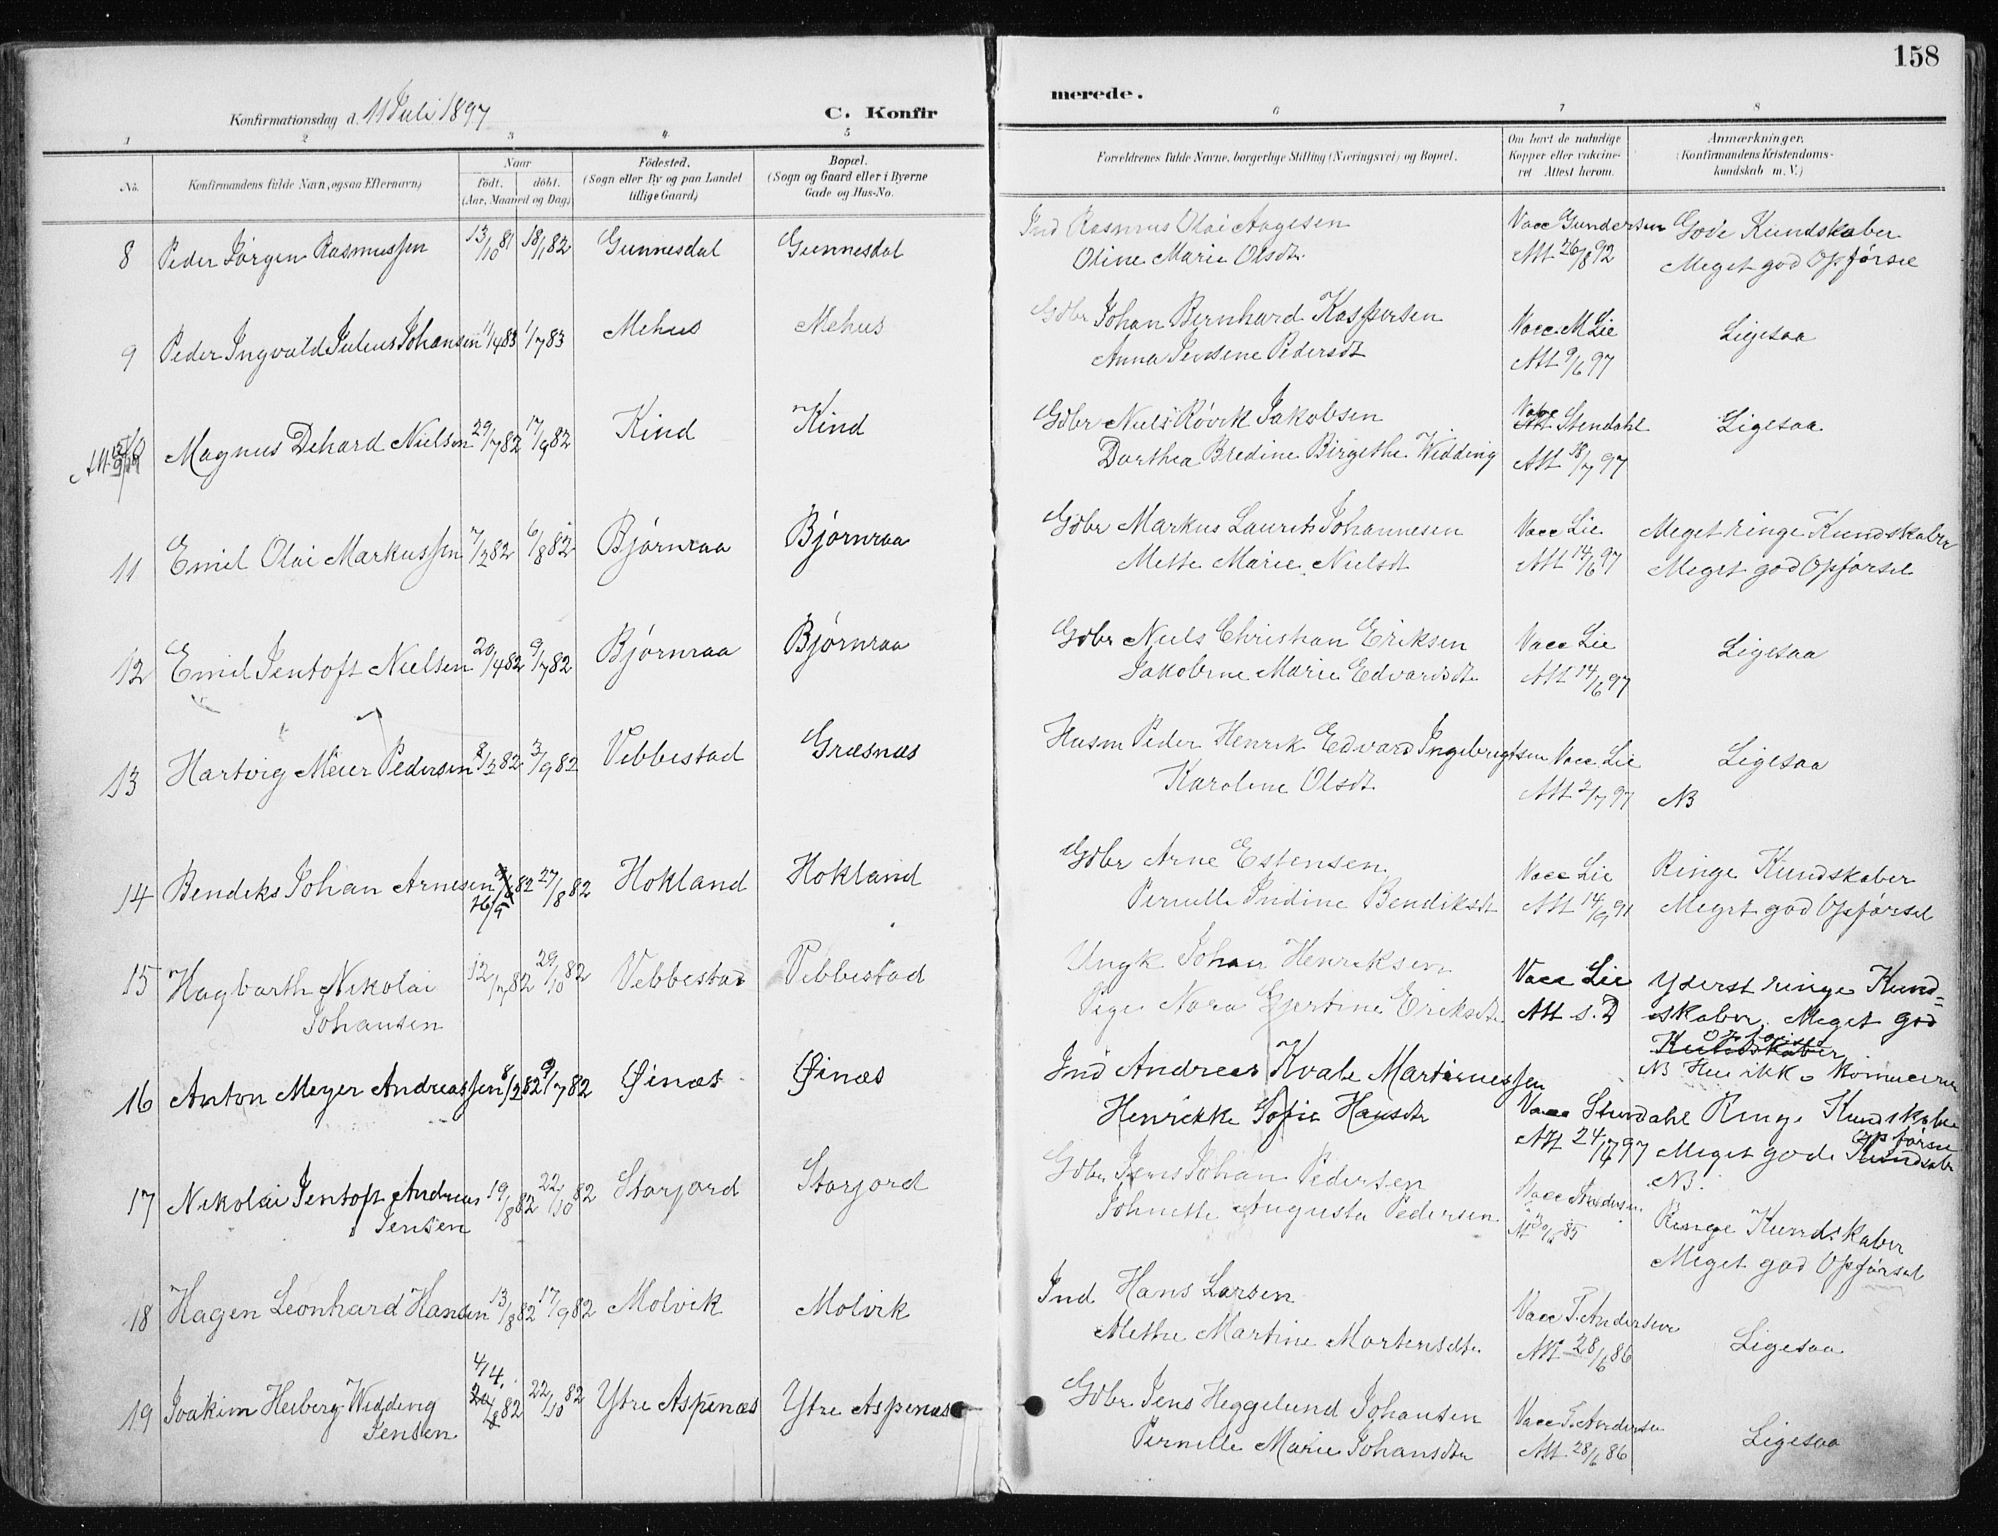 158
Konfirmationsdag d. 11 Juli 1897
C. Konfir
merede.
1 2 3 4 5 6 7 8
No.
Konfirmandens fulde Navn, ogsaa Efternavn)
Naar
födt. döbt.
(Aar, Maaned og Dag)
Födested.
(Sogn eller By og paa Landet
tillige Gaard)
Bopæl.
(Sogn og Gaard eller i Byerne
Gade og Hus-No.
Forældrenes fulde Navne, borgerlige Stilling (Næringsvei) og Bopæl.
Om havt de naturlige
Kopper eller vakcine-
ret Attest herom.
Anmærkninger.
(Konfirmandens Kristendoms-
kundskab m. V.)
8 Peder Jørgen Rasmussen 13/10 81 18/1 82 Gunnesdal Gunnesdal Ind Rasmus Olai Aagesen Vacc Gundersen Gode Kundskaber
Oline Marie Olsdt. Att 26/8 92 Meget god Opførsel
9 Peder Ingvald Julius Johansen 11/4 83 1/7 83 Mehus Mehus Gdbr Johan Bernhard Kaspersen Vacc. M Lie Ligesaa
Anna Jensine Pedersdt Att 9/6 97
Magnus Dehard Nielsen 29/7 82 17/9 82 Kind Kind Gdbr Niels Røvik Jakobsen Vacc Stendahl Ligesaa
Dorthea Bredine Birgethe Widding Att 18/7 97
11 Emil Olai Markussen 7/2 82 6/8 82 Bjørnraa Bjørnraa Gdbr Markus Laurits Johannesen Vacc Lie Meget ringe Kundskaber
Mette Marie Nielsdt Att 14/6 97 Meget god Opførsel
12 Emil Jentoft Nielsen 20/4 82 9/7 82 Bjørnraa Bjørnraa Gdbr Niels Christian Eriksen Vacc Lie Ligesaa
Jakobine Marie Edvardsdtr Att 14/6 97
13 Hartvig Meier Pedersen 8/2 82 3/9 82 Vebbestad Græsnæs Husm Peder Henrik Edvard Ingebrigtsen Vacc Lie Ligesaa
Karoline Olsdt Att 2/7 97 NB
14 Bendiks Johan Arnesen 82 27/8 82 Hokland Hokland Gdbr Arne Estensen Vacc Lie Ringe Kundskaber
26/5 Pernille Indine Bendiksdt Att 14/9 91 Meget god Opførsel
15 Hagbarth Nikolai 12/7 82 29/10 82 Vebbestad Vebbestad Ungk Johan Henriksen Vacc Lie Yderst ringe Kund=
Johansen Pige Nora Gjertine Eriksdtr Att s. D skaber. Meget god
Opførsel
Kundskaber
16 Anton Meyer Andreassen 8/2 82 9/7 82 Øinæs Øinæs Ind Andreas Kvale Martinussen NB
Henrikke Sofie Hansdtr Vacc Stendahl Ringe Kundskaber
Att 24/7 97 Meget gode Kundskab
Opførsel
NB.
17 Nikolai Jentoft Andreas 19/8 82 22/10 82 Storjord Storjord Gdbr Jens Johan Pedersen Vacc Andersen Ringe Kundskaber
Jensen Johnette Augusta Pedersen Meget god Opførsel
18 Hagen Leonhard Hansen 13/8 82 17/9 82 Molvik Molvik Ind Hans Larsen Vacc T. Andersen Ligesaa
Mette Martine Mortensdtr Att 28/6 86
4/4.
19 Joakim Heiberg Widding 82 22/10 82 Ytre Aspenæs Ytre Aspenæs Gdbr Jens Heggelund Johansen Vacc T. Andersen Ligesaa
Jensen Pernille Marie Johansdtr Att 28/6 86